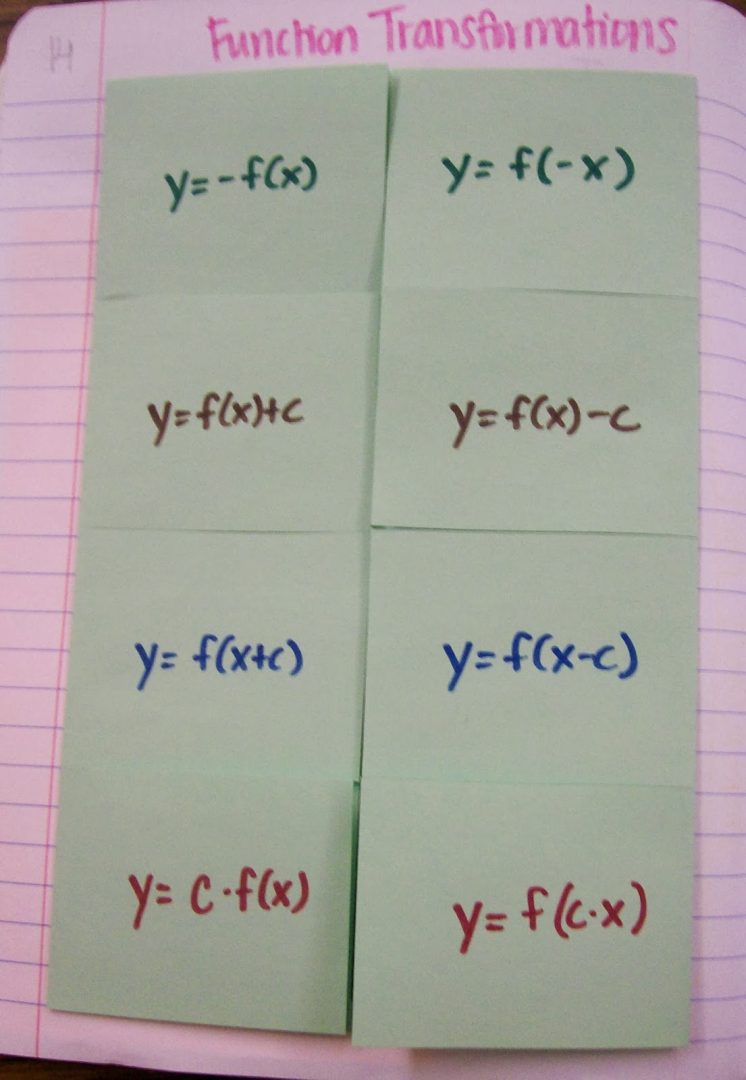 14
Function Transformations
y=-f(x)
y= f(-x)
y=f(x)+c
y=f(x)-c
y= f(x+c)
y=f(x-c)
y= c·f(x)
y= f(c·x)